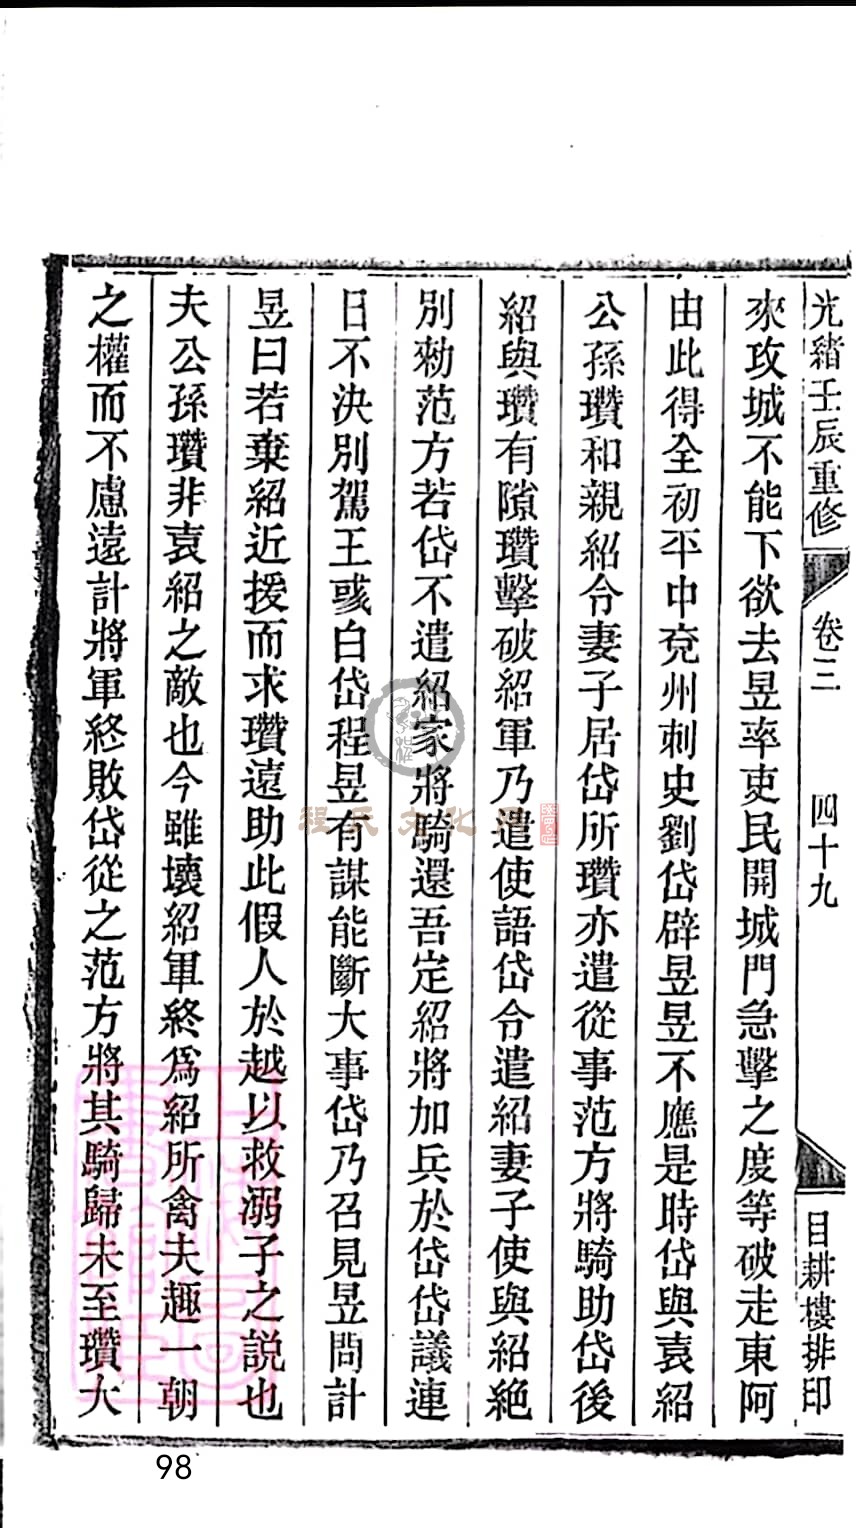 光緒壬辰重修 卷三 四十九 目耕樓排印
來攻城不能下欲去昱率吏民開城門急擊之度等破走東阿
由此得全初平中兗州刺史劉岱辟昱昱不應是時岱與袁紹
公孫瓚和親紹令妻子居岱所瓚亦遣從事范方將騎助岱後
紹與瓚有隙瓚擊破紹軍乃遣使語岱令遣紹妻子使與紹絶
別勑范方若岱不遣紹家將騎還吾定紹將加兵於岱岱議連
日不決別駕王彧白岱程昱有謀能斷大事岱乃召見昱問計
昱曰若棄紹近援而求瓚遠助此假人於越以救溺子之説也
夫公孫瓚非袁紹之敵也今雖壊紹軍終爲紹所禽夫趣一朝
之權而不慮遠計將軍終敗岱從之范方將其騎歸未至瓚大
程氏文化
98